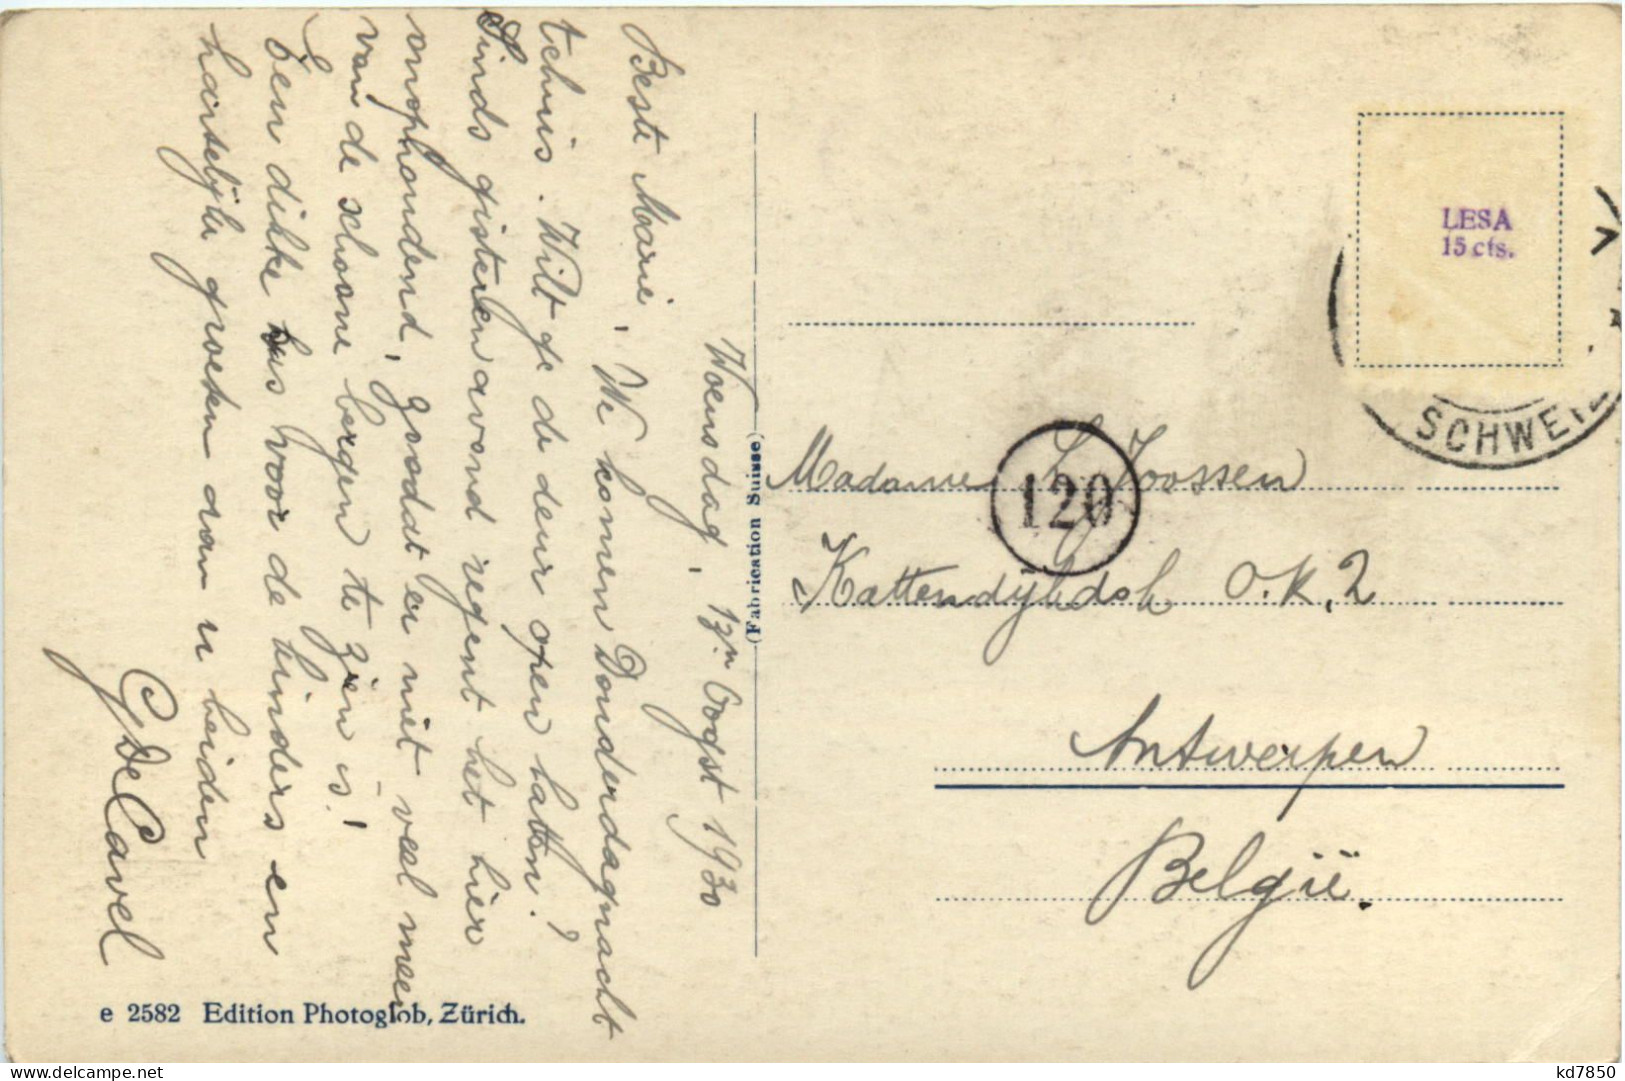 Woensdag, 13n Oogst 1930
Beste Marie,
We komen Donderdagnacht
tehuis. Wilt ge de deur open laten?
Sinds gisterenavond regent het hier
onophoudend, zoodat er niet veel meer
van de schoone bergen te zien is!
Een dikke kus voor de kinders en
hartelijke groeten aan u beiden
G De Cavel
e 2582 Edition Photoglob, Zürich.
(Fabrication Suisse)
LESA
15 cts.
SCHWEIZ
120
Madame Joossen
Kattendijkdok O.K. 2
Antwerpen
België.
kd7850